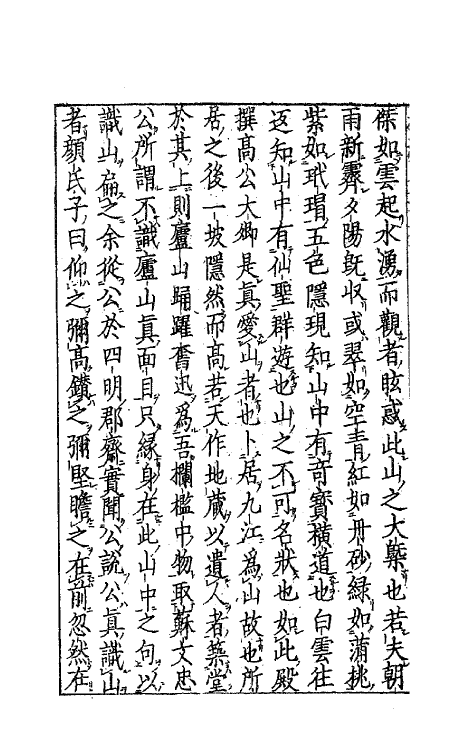 傑如雲起水湧而觀者眩惑此山之大槩也若夫朝
雨新霽夕陽既収或翠如空青紅如丹砂緑如蒲桃
紫如玳瑁五色隱現知山中有竒寳横道也白雲往
返知山中有仙聖群遊也山之不可名狀也如此殿
撰髙公大卿是真愛山者也卜居九江為山故也所
居之後一坡隱然而髙若天作地蔵以遺人者築堂
於其上則廬山踊躍奮迅為吾欄檻中物取蘇文忠
公所謂不識廬山真面目只縁身在此山中之句以
識山扁之余從公於四明郡齋實聞公說公真識山
者顔氏子曰仰之彌髙鑚之彌堅瞻之在前忽然在